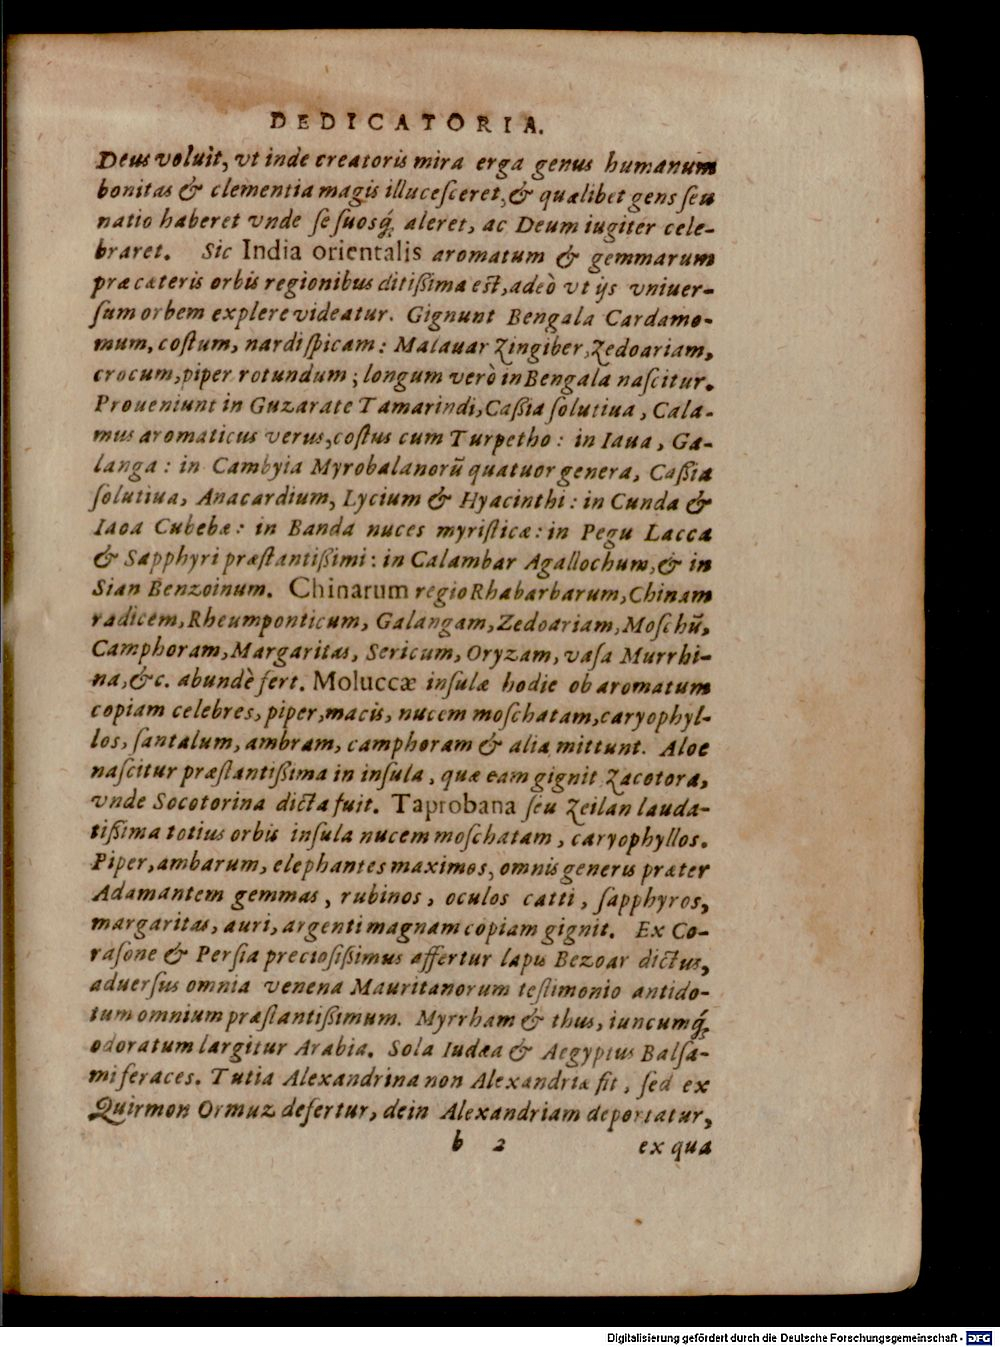 DEDICATORIA.
Deus voluit, vt inde creatoris mira erga genus humanum
bonitas & clementia magis illucesceret, & quælibet gens seu
natio haberet vnde se suosq́; aleret, ac Deum iugiter cele-
braret. Sic India orientalis aromatum & gemmarum
præ cæteris orbis regionibus ditißima est, adeò vt ijs vniuer-
sum orbem explere videatur. Gignunt Bengala Cardamo-
mum, costum, nardi spicam: Malauar Zingiber, Zedoariam,
crocum, piper rotundum; longum verò in Bengala nascitur.
Proueniunt in Guzarate Tamarindi, Caßia solutiua, Cala-
mus aromaticus verus, costus cum Turpetho: in Iaua, Ga-
langa: in Cambyia Myrobalanorũ quatuor genera, Caßia
solutiua, Anacardium, Lycium & Hyacinthi: in Cunda &
Iaoa Cubebæ: in Banda nuces myristicæ: in Pegu Lacca
& Sapphyri præstantißimi: in Calambar Agallochum, & in
Sian Benzoinum. Chinarum regio Rhabarbarum, Chinam
radicem, Rheumponticum, Galangam, Zedoariam, Moschũ,
Camphoram, Margaritas, Sericum, Oryzam, vasa Murrhi-
na, &c. abundè fert. Moluccæ insulæ hodie ob aromatum
copiam celebres, piper, macis, nucem moschatam, caryophyl-
los, santalum, ambram, camphoram & alia mittunt. Aloe
nascitur præstantißima in insula, quæ eam gignit Zacotora,
vnde Socotorina dicta fuit. Taprobana seu Zeilan lauda-
tißima totius orbis insula nucem moschatam, caryophyllos.
Piper, ambarum, elephantes maximos, omnis generis præter
Adamantem gemmas, rubinos, oculos catti, sapphyros,
margaritas, auri, argenti magnam copiam gignit. Ex Co-
rasone & Persia preciosißimus affertur lapis Bezoar dictus,
aduersus omnia venena Mauritanorum testimonio antido-
tum omnium præstantißimum. Myrrham & thus, iuncumq́;
odoratum largitur Arabia. Sola Iudæa & Aegyptus Balsa-
mi feraces. Tutia Alexandrina non Alexandriæ fit, sed ex
Quirmon Ormuz defertur, dein Alexandriam deportatur,
b 2 ex qua
Digitalisierung gefördert durch die Deutsche Forschungsgemeinschaft - DFG